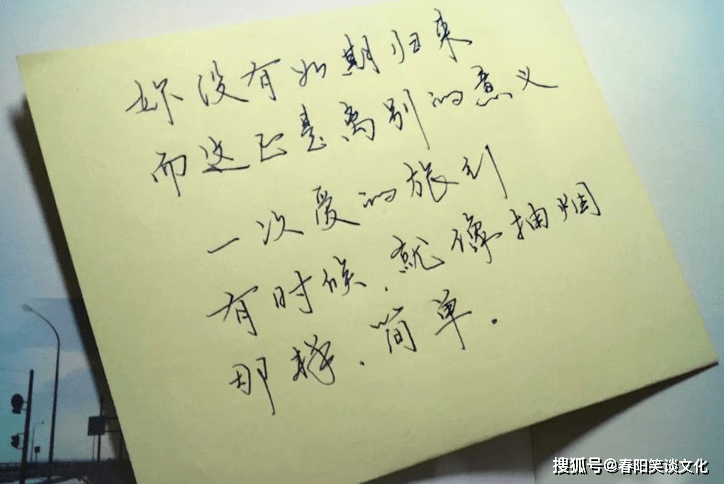 妳没有如期归来
而这正是离别的意义
一次爱的旅行
有时候、就像抽烟
那样、简单.
搜狐号@春阳笑谈文化